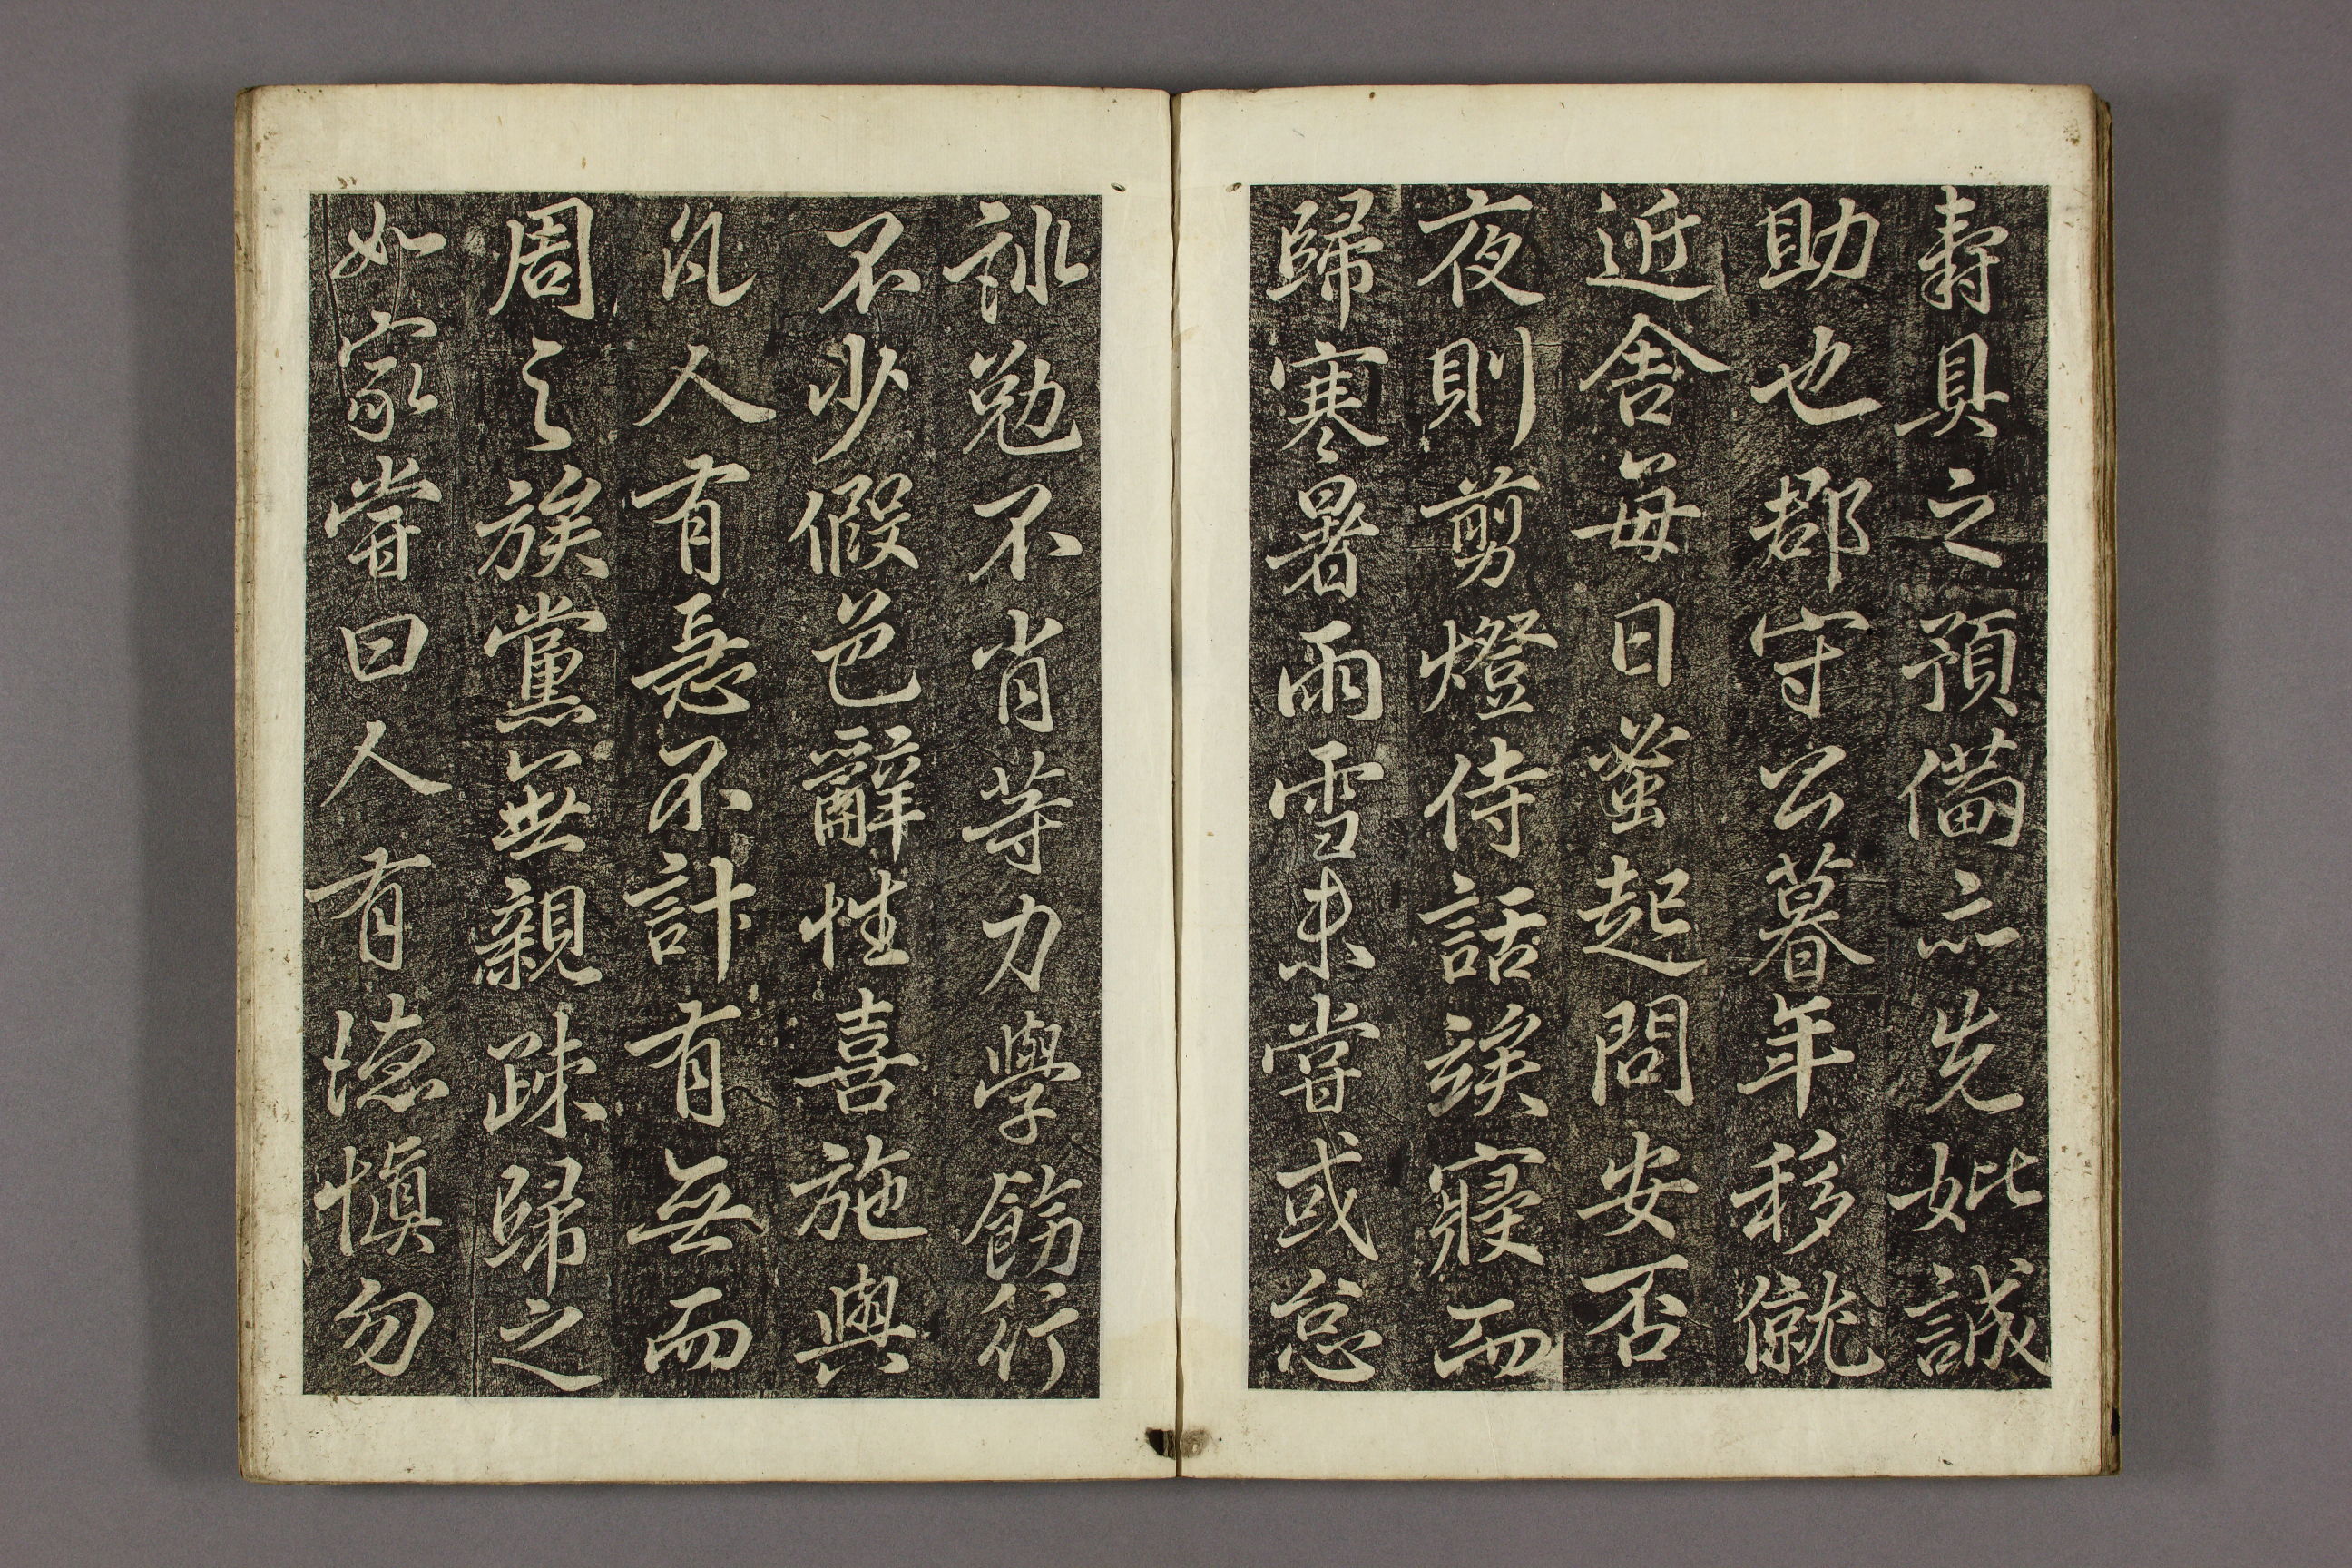 壽具之預備亦先妣誠
助也郡守公暮年移僦
近舍每日蚤起問安否
夜則剪燈侍話竢寢而
歸寒暑雨雪未嘗或怠
訓勉不肖等力學飭行
不少假色辭性喜施與
凡人有急不計有無而
周之族黨無親疎歸之
如家嘗曰人有德愼勿